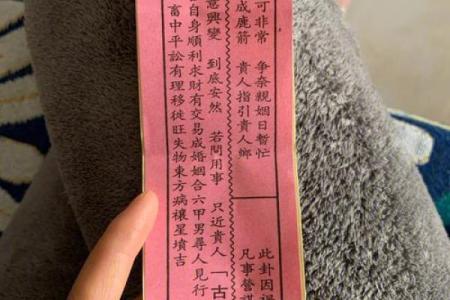 可非常 爭奈親姻日暫忙
成鹿箭 貴人指引貴人鄉
此卦因
凡事營謀
意興變 到底安然 若問用事 只近貴人「古
自身順利求財有交易成婚姻合六甲男尋人見行
畜中平訟有理移徙旺失物東方病禳星墳吉